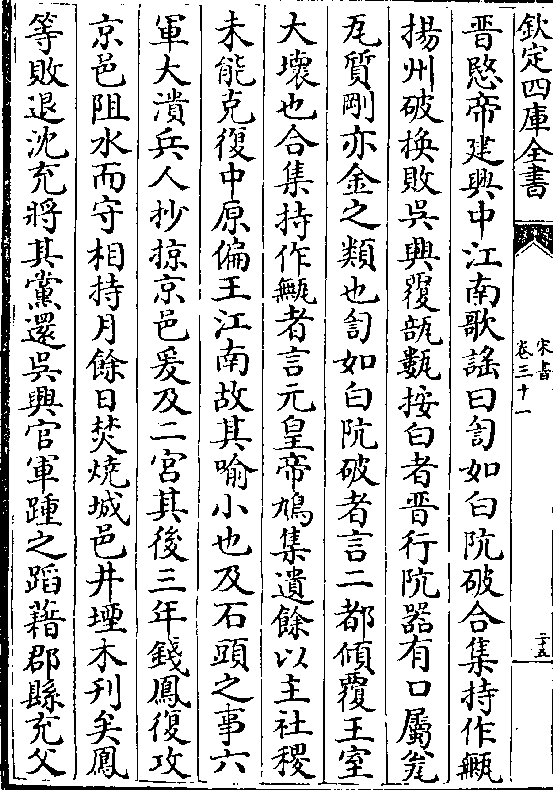 欽定四庫全書
宋書
卷三十一
二十五
晋愍帝建興中江南歌謠曰訇如白阬破合集持作甒
揚州破換敗吳興覆瓿甊按白者晋行阬器有口屬瓮
瓦質剛亦金之類也訇如白阬破者言二都傾覆王室
大壊也合集持作甒者言元皇帝鳩集遺餘以主社稷
未能克復中原偏王江南故其喻小也及石頭之事六
軍大潰兵人抄掠京邑爰及二宮其後三年錢鳳復攻
京邑阻水而守相持月餘日焚燒城邑井堙木刋矣鳳
等敗退沈充將其黨還吳興官軍踵之蹈藉郡縣充父